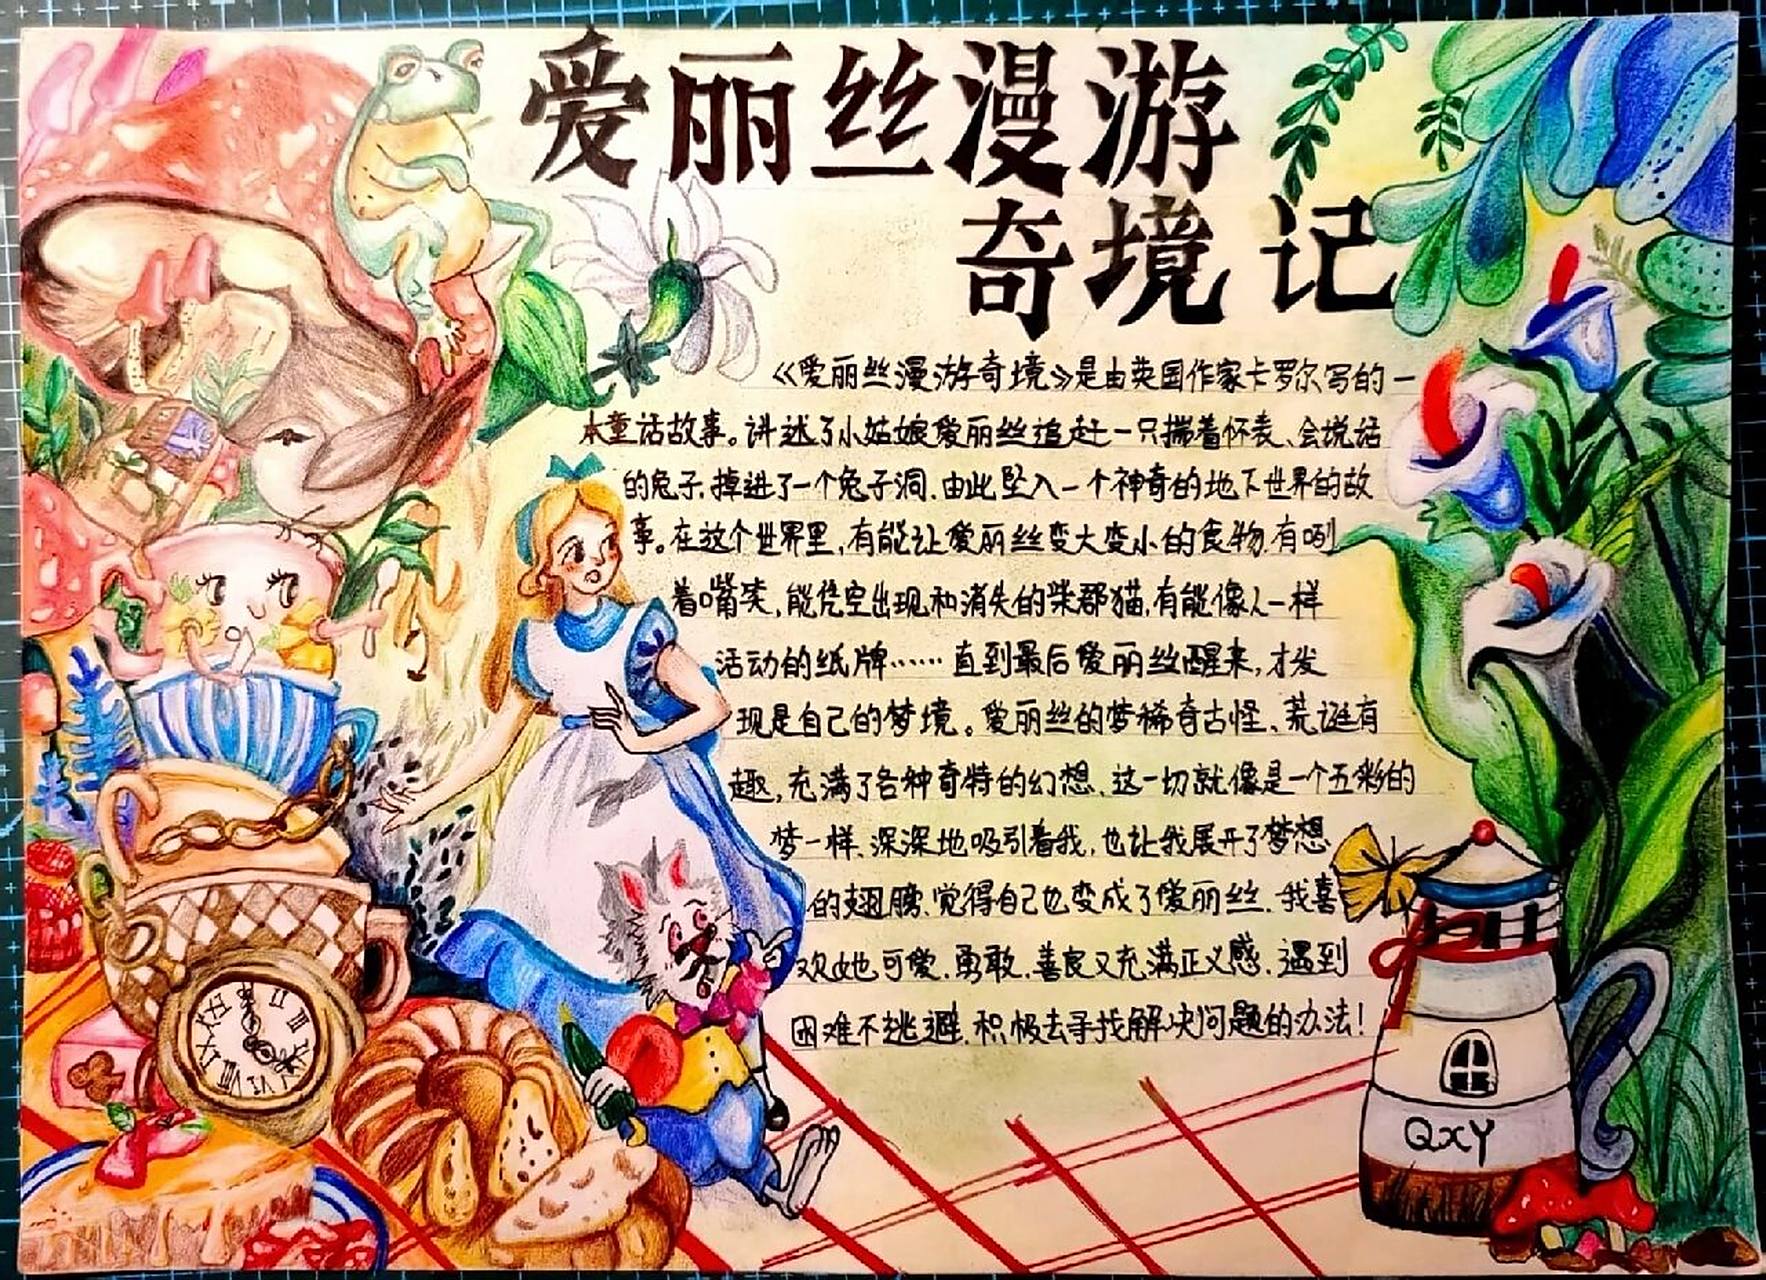 爱丽丝漫游
奇境记
《爱丽丝漫游奇境》是由英国作家卡罗尔写的一
本童话故事。讲述了小姑娘爱丽丝追赶一只揣着怀表、会说话
的兔子,掉进了一个兔子洞,由此坠入一个神奇的地下世界的故
事。在这个世界里,有能让爱丽丝变大变小的食物,有咧
着嘴笑,能凭空出现和消失的柴郡猫,有能像人一样
活动的纸牌……直到最后爱丽丝醒来,才发
现是自己的梦境。爱丽丝的梦稀奇古怪、荒诞有
趣,充满了各种奇特的幻想,这一切就像是一个五彩的
梦一样,深深地吸引着我,也让我展开了梦想
的翅膀,觉得自己也变成了爱丽丝,我喜
欢她可爱,勇敢,善良又充满正义感,遇到
困难不逃避,积极去寻找解决问题的办法!
QXY